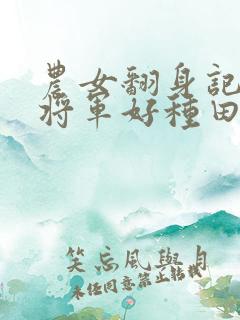 農女翻身記
將軍好種田
笑忘風與月
未經同意禁止轉載